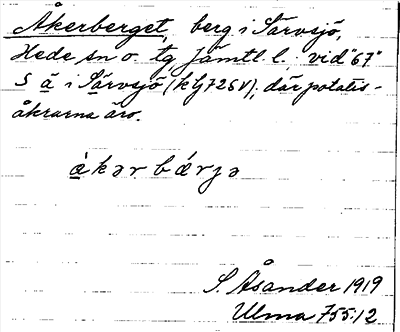 Åkerberget, berg i Särvsjö,
Hede sn o. tg Jämtl. l. vid "67"
S ä i Särvsjö (klj 726 V), där potatis-
åkrarna äro.
S. Åsander 1919
Ulma 755:12